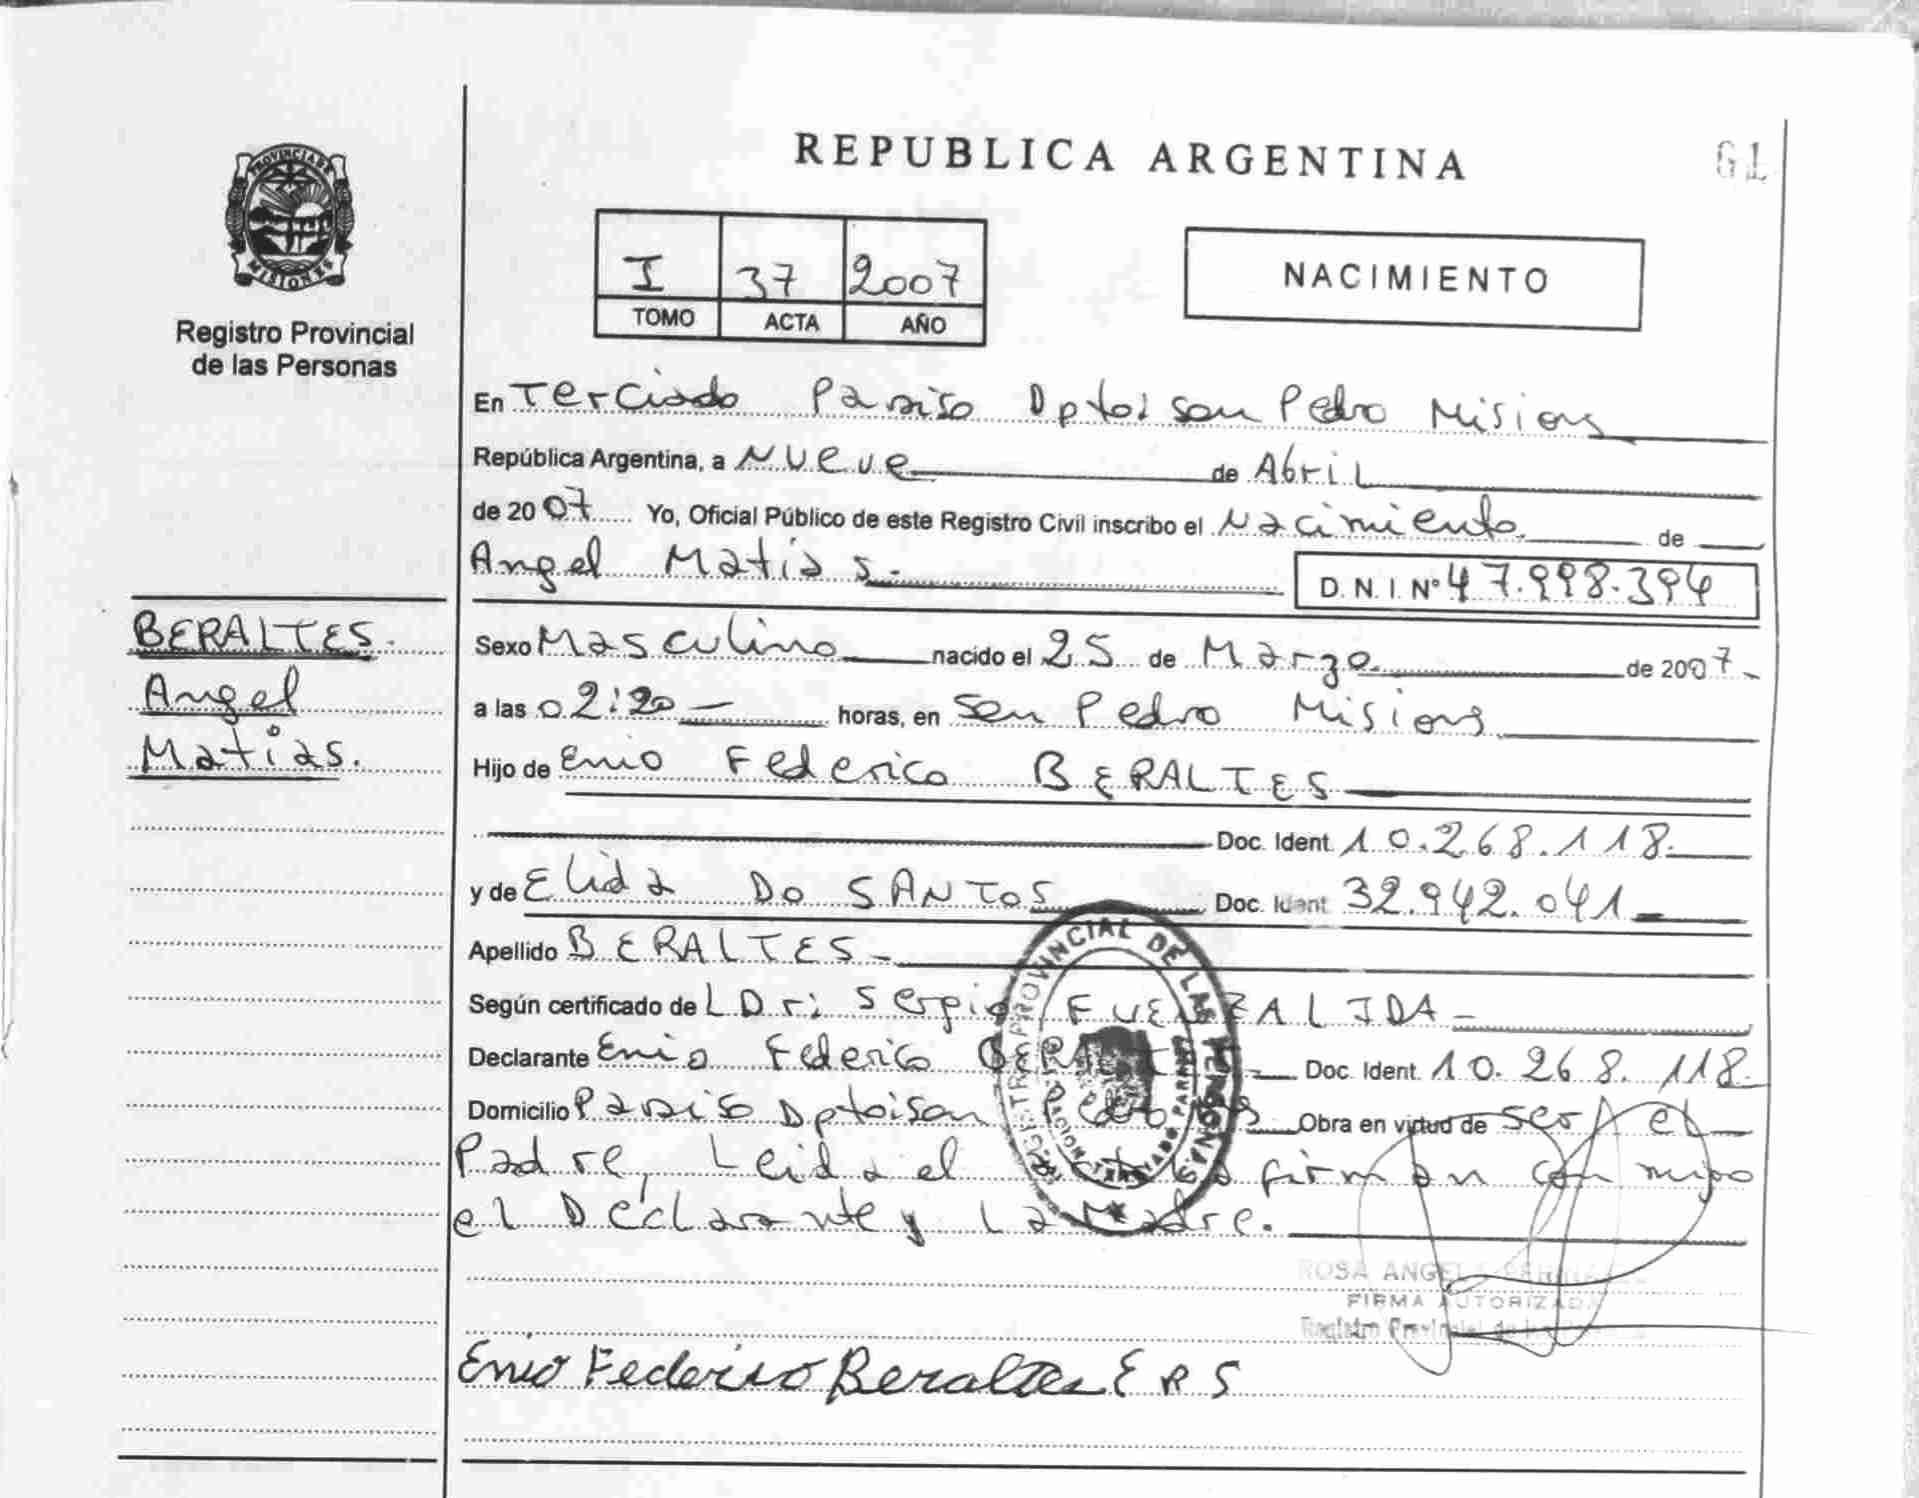 REPUBLICA ARGENTINA
61
PROVINCIA DE
MISIONES
Registro Provincial
de las Personas
I 37 2007
TOMO ACTA AÑO
NACIMIENTO
En Terciado Paraiso Dpto: san Pedro Misiones
República Argentina, a Nueve de Abril
de 2007 Yo, Oficial Público de este Registro Civil inscribo el Nacimiento de
Angel Matias.- D.N.I. Nº 47.998.394
BERALTES.
Angel
Matias.
Sexo Masculino nacido el 25 de Marzo de 2007-
a las 02:20 horas, en San Pedro Misiones
Hijo de Enio Federico BERALTES
Doc. Ident. 10.268.118.
y de Elida DO SANTOS Doc. Ident. 32.942.041
Apellido BERALTES-
Según certificado de L Dr: Sergio FUENZALIDA-
Declarante Enio Federico BERALTES Doc. Ident. 10.268.118.
Domicilio Paraiso Dpto: san Pedro Obra en virtud de ser el
Padre, Leida el acta la firman con migo
el Declarante y La Madre.
REGISTRO PROVINCIAL DE LAS PERSONAS
ROSA ANGELA
FIRMA AUTORIZADA
Registro Provincial de las
Enio Federico Beraltes E R S